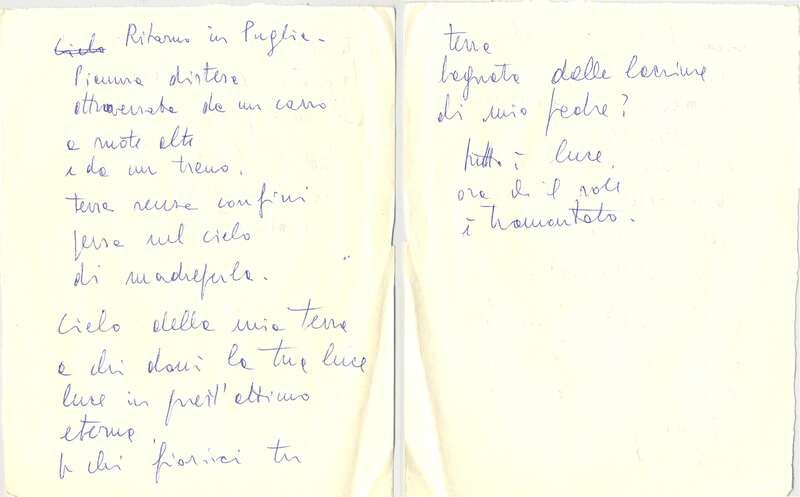 Cielo Ritorno in Puglia.
Pianura distesa
attraversata da un carro
a ruote alte
e da un treno.
terra senza confini
persa nel cielo
di madreperla.
Cielo della mia terra
a chi doni la tua luce
luce in quest'attimo
eterna
per chi fiorisci tu
terra
bagnata dalle lacrime
di mio padre?
tutto è luce
ora che il sole
è tramontato.